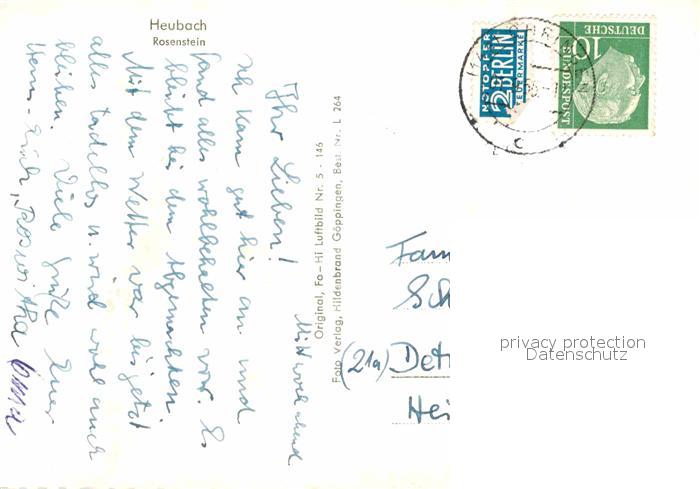 Heubach
Rosenstein
Mittwoch abend
Ihr Lieben!
Ich kam gut hier an und
fand alles wohlbehalten vor. Es
bleibt bei dem Abgemachten
Mit dem Wetter war bis jetzt
alles tadellos u. wird wohl auch
bleiben. Viele Grüße Euer
Hans-Erich, Roswitha
Original, Fo-Hi Luftbild Nr. 5 - 146
Foto Verlag, Hildenbrand Göppingen, Best. Nr. L 264
NOTOPFER
2 BERLIN
STEUERMARKE
10
DEUTSCHE
BUNDESPOST
Fam
Sch
(21a) Det
Hei
privacy protection
Datenschutz